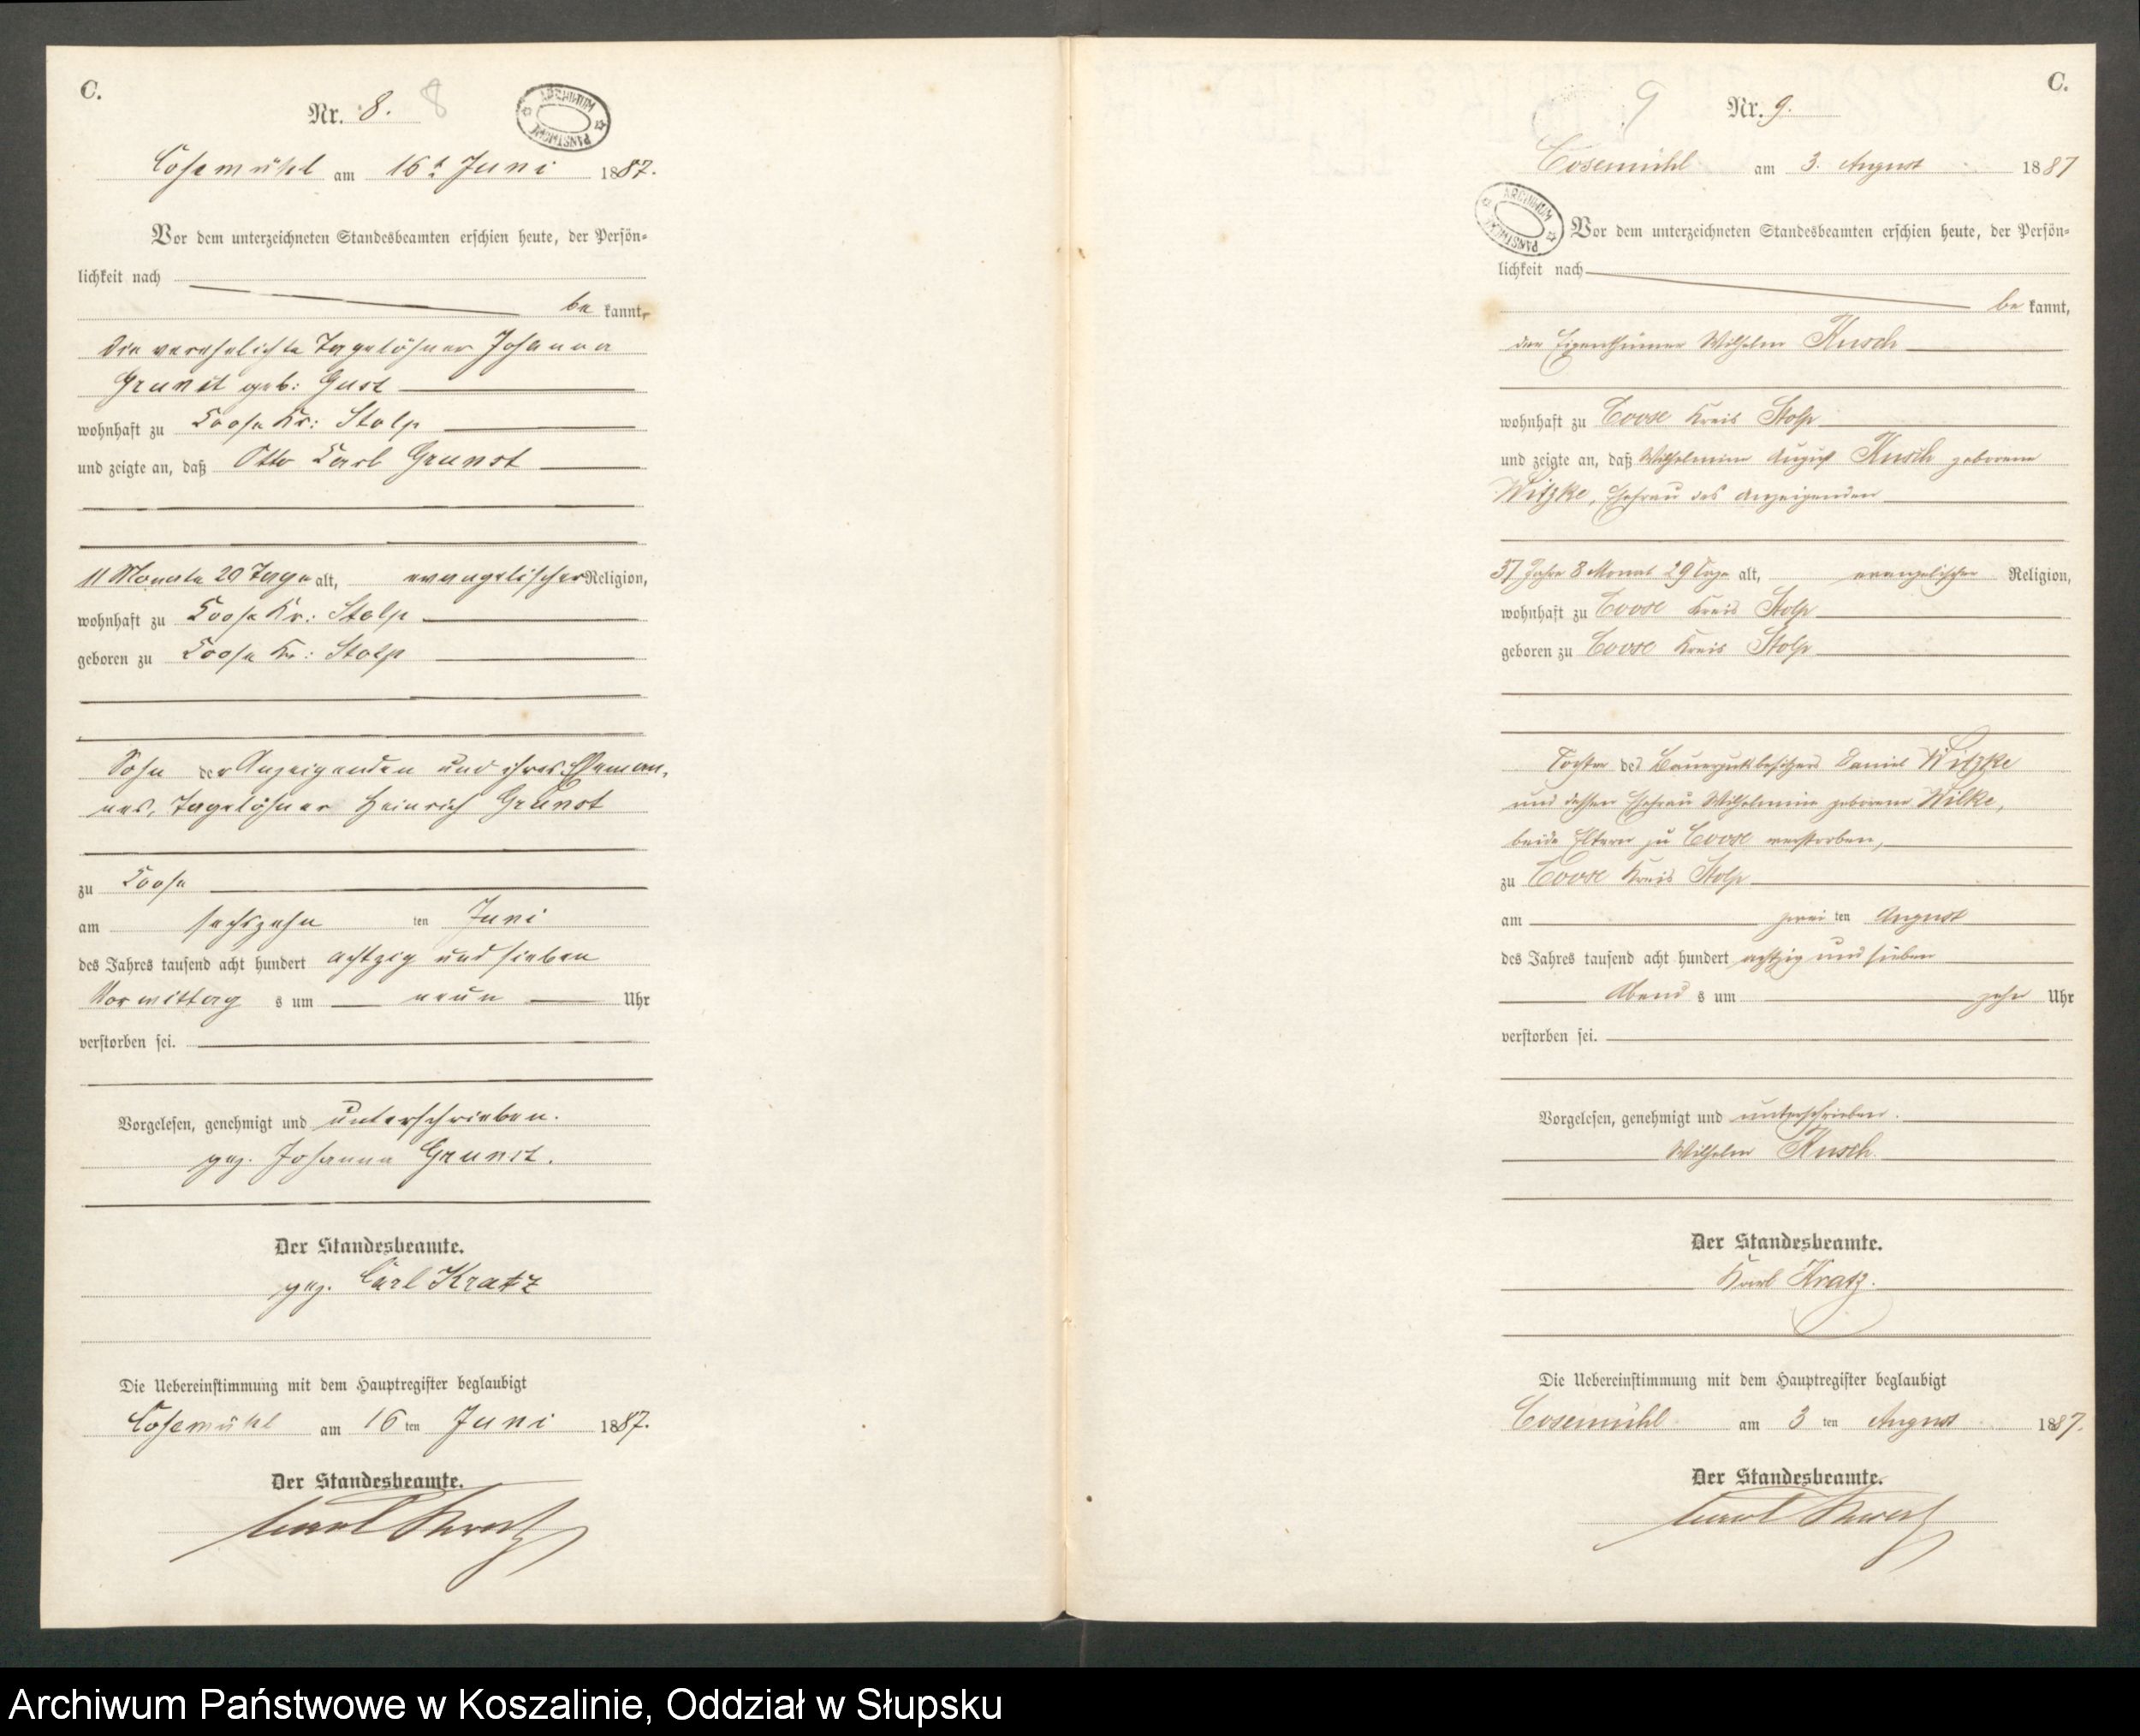 C.
Nr. 8. 8
ARCHIWUM PAŃSTWOWE
Cosemühl am 16t Juni 1887.
Vor dem unterzeichneten Standesbeamten erschien heute, der Persön-
lichkeit nach
be kannt,
die verehelichte Tagelöhner Johanna
Grunst geb: Gust
wohnhaft zu Coose Kr: Stolp
und zeigte an, daß Otto Carl Grunst
11 Monate 29 Tage alt, evangelischer Religion,
wohnhaft zu Coose Kr: Stolp
geboren zu Coose Kr: Stolp
Sohn der Anzeigenden und ihres Eheman-
nes, Tagelöhner Heinrich Grunst
zu Coose
am sechszehn ten Juni
des Jahres tausend acht hundert achtzig und sieben
Vormittag s um neun Uhr
verstorben sei.
Vorgelesen, genehmigt und unterschrieben.
gez. Johanna Grunst.
Der Standesbeamte.
gez. Carl Kratz
Die Uebereinstimmung mit dem Hauptregister beglaubigt
Cosemühl am 16 ten Juni 1887.
Der Standesbeamte.
Carl Kratz
C.
9 Nr. 9.
Cosemühl am 3. August 1887
ARCHIWUM PAŃSTWOWE
Vor dem unterzeichneten Standesbeamten erschien heute, der Persön-
lichkeit nach
be kannt,
der Eigenthümer Wilhelm Kusch
wohnhaft zu Coose Kreis Stolp
und zeigte an, daß Wilhelmine August Kusch geborene
Witzke, Ehefrau des Anzeigenden
37 Jahre 8 Monat 29 Tage alt, evangelischer Religion,
wohnhaft zu Coose Kreis Stolp
geboren zu Coose Kreis Stolp
Tochter des Bauergutsbesitzers Daniel Witzke
und dessen Ehefrau Wilhelmine geborene Wilke,
beide Eltern zu Coose verstorben,
zu Coose Kreis Stolp
am zwei ten August
des Jahres tausend acht hundert achtzig und sieben
Abend s um zehn Uhr
verstorben sei.
Vorgelesen, genehmigt und unterschrieben.
Wilhelm Kusch.
Der Standesbeamte.
Karl Kratz.
Die Uebereinstimmung mit dem Hauptregister beglaubigt
Cosemühl am 3 ten August 1887.
Der Standesbeamte.
Carl Kratz
Archiwum Państwowe w Koszalinie, Oddział w Słupsku